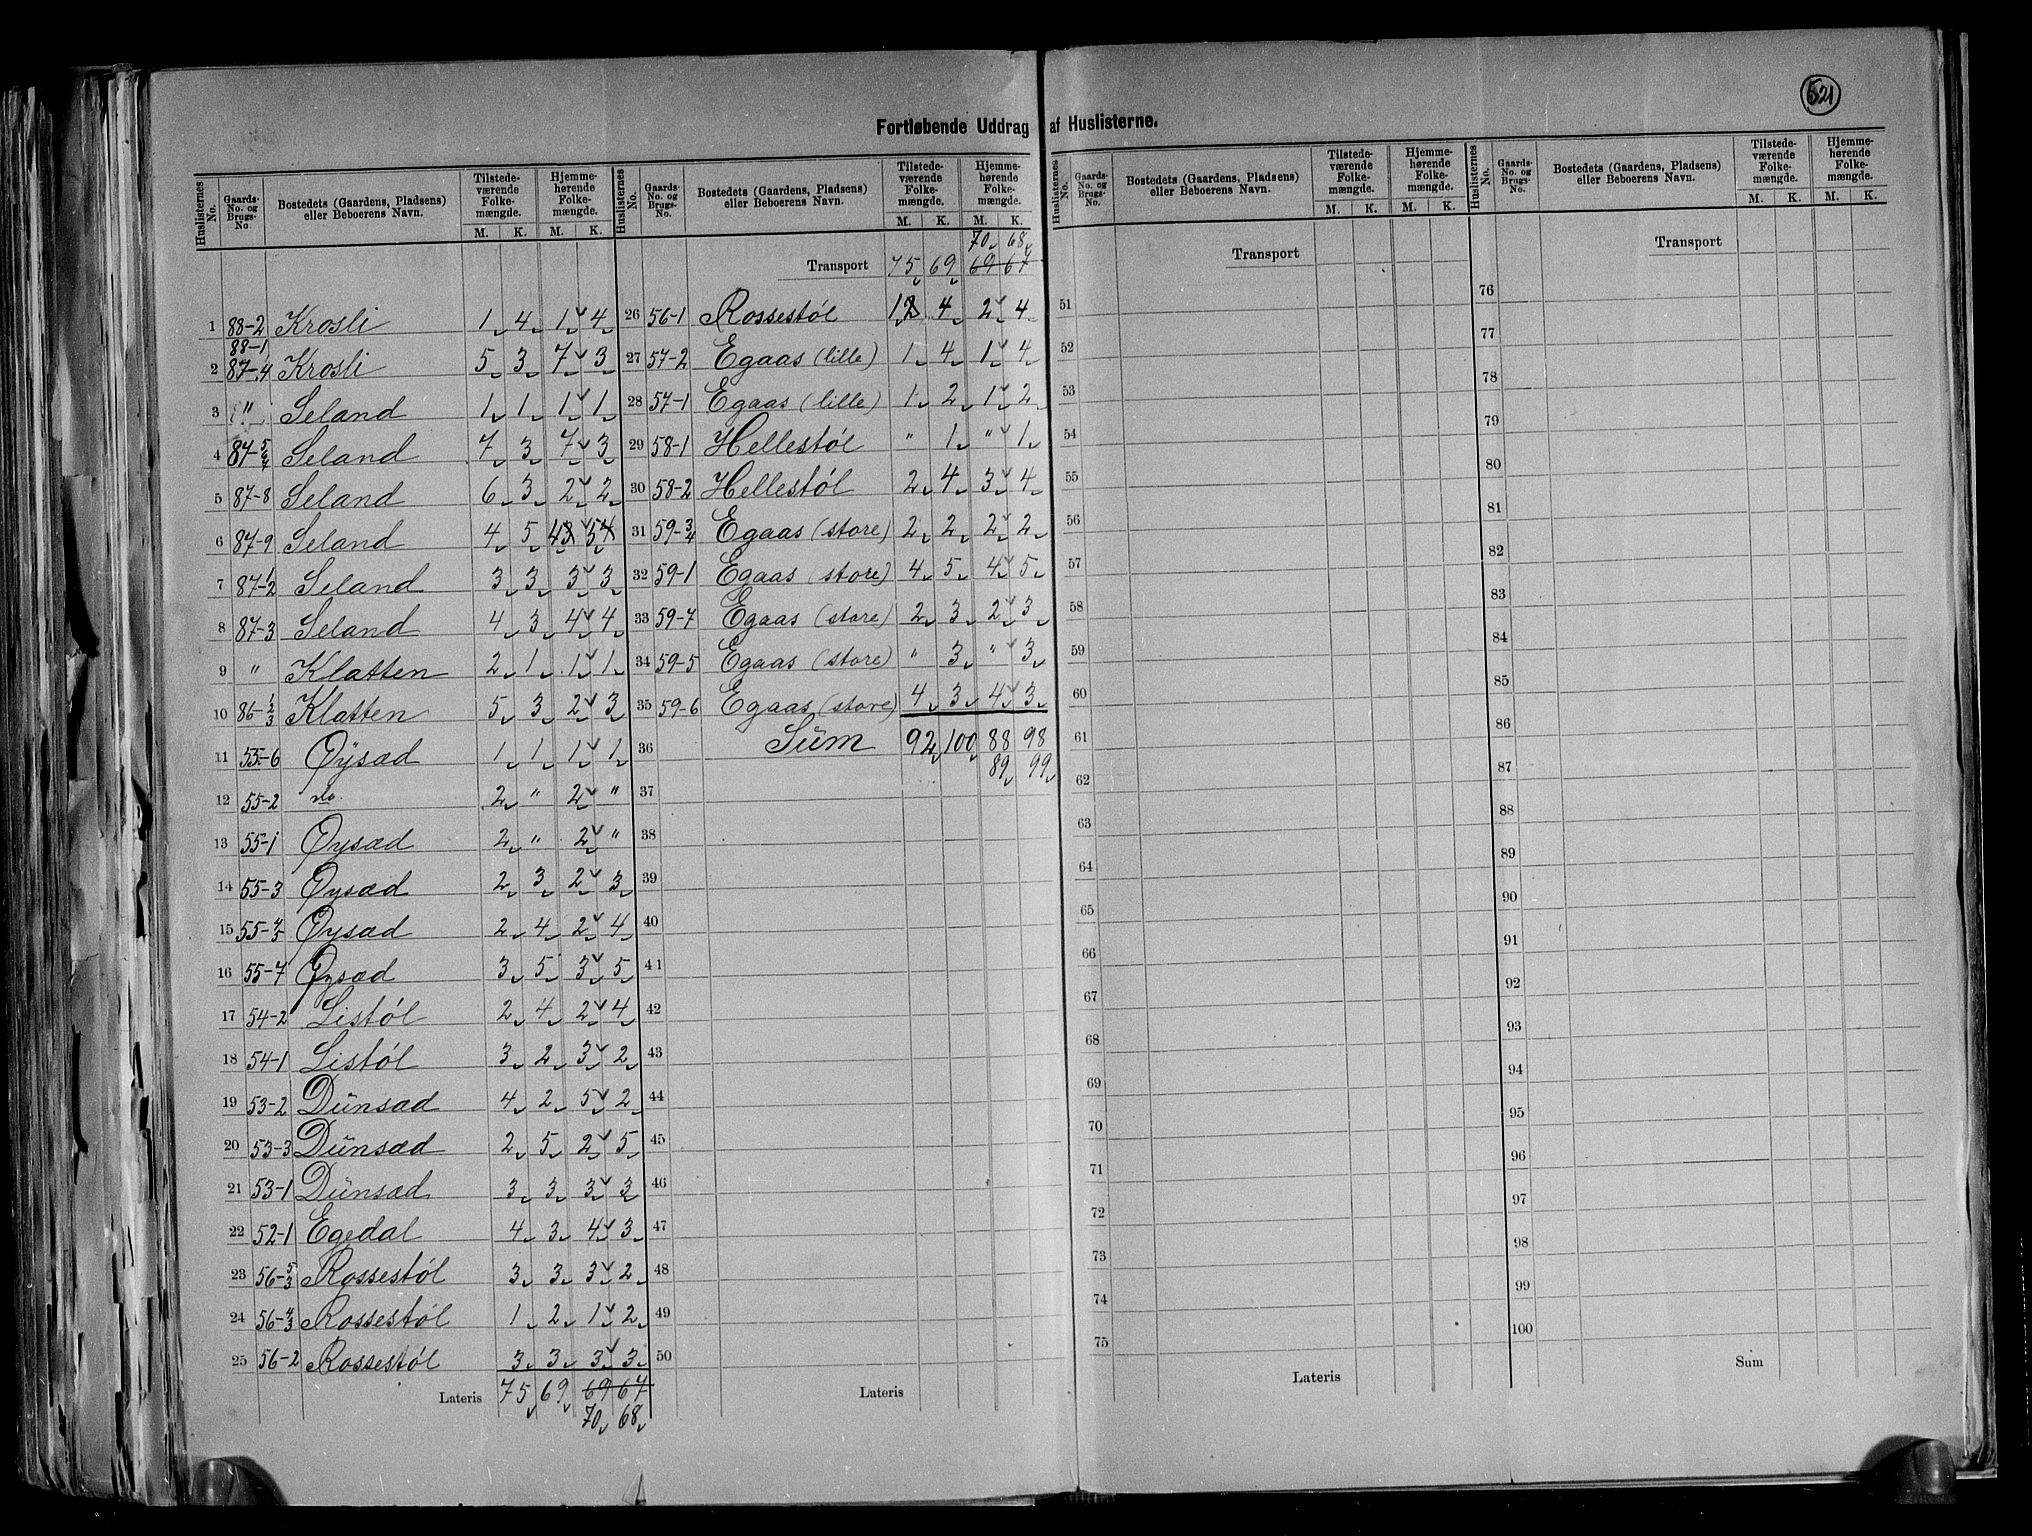 521
Fortløbende Uddrag af Huslisterne.
Huslisternes No. | Gaards-No. og Brugs-No. | Bostedets (Gaardens, Pladsens) eller Beboerens Navn. | Tilstedeværende Folkemængde. M. K. | Hjemmehørende Folkemængde. M. K.
1 88-2 Krosli 1 4 1 4
2 88-1 87-4 Krosli 5 3 7 3
3 " Seland 1 1 1 1
4 87-5 Seland 7 3 7 3
5 87-8 Seland 6 3 2 2
6 87-9 Seland 4 5 43 54
7 87-1/2 Seland 3 3 3 3
8 87-3 Seland 4 3 4 4
9 " Klatten 2 1 1 1
10 86-1/2/3 Klatten 5 3 2 3
11 55-6 Øysad 1 1 1 1
12 55-2 do. 2 " 2 "
13 55-1 Øysæd 2 " 2 "
14 55-3 Øysæd 2 3 2 3
15 55-4/5 Øysæd 2 4 2 4
16 55-7 Øysæd 3 5 3 5
17 54-2 Listøl 2 4 2 4
18 54-1 Listøl 3 2 3 2
19 53-2 Dünsæd 4 2 5 2
20 53-3 Dünsæd 2 5 2 5
21 53-1 Dünsæd 3 3 3 3
22 52-1 Egedal 4 3 4 3
23 56-5/3 Rossestøl 3 3 3 2
24 56-4/3 Rossestøl 1 2 1 2
25 56-2 Rossestøl 3 3 3 3
Lateris 75 69 69 67
70 68
Huslisternes No. | Gaards-No. og Brugs-No. | Bostedets (Gaardens, Pladsens) eller Beboerens Navn. | Tilstedeværende Folkemængde. M. K. | Hjemmehørende Folkemængde. M. K.
70 68
Transport 75 69 69 67
26 56-1 Rossestøl 12 4 2 4
27 57-2 Egaas (lille) 1 4 1 4
28 57-1 Egaas (lille) 1 2 1 2
29 58-1 Hellestøl " 1 " 1
30 58-2 Hellestøl 2 4 3 4
31 59-3/4 Egaas (store) 2 2 2 2
32 59-1 Egaas (store) 4 5 4 5
33 59-7 Egaas (store) 2 3 2 3
34 59-5 Egaas (store) " 3 " 3
35 59-6 Egaas (store) 4 3 4 3
36 Süm 92 100 88 98
89 99
37
38
39
40
41
42
43
44
45
46
47
48
49
50
Lateris
Huslisternes No. | Gaards-No. og Brugs-No. | Bostedets (Gaardens, Pladsens) eller Beboerens Navn. | Tilstedeværende Folkemængde. M. K. | Hjemmehørende Folkemængde. M. K.
Transport
51
52
53
54
55
56
57
58
59
60
61
62
63
64
65
66
67
68
69
70
71
72
73
74
75
Lateris
Huslisternes No. | Gaards-No. og Brugs-No. | Bostedets (Gaardens, Pladsens) eller Beboerens Navn. | Tilstedeværende Folkemængde. M. K. | Hjemmehørende Folkemængde. M. K.
Transport
76
77
78
79
80
81
82
83
84
85
86
87
88
89
90
91
92
93
94
95
96
97
98
99
100
Sum